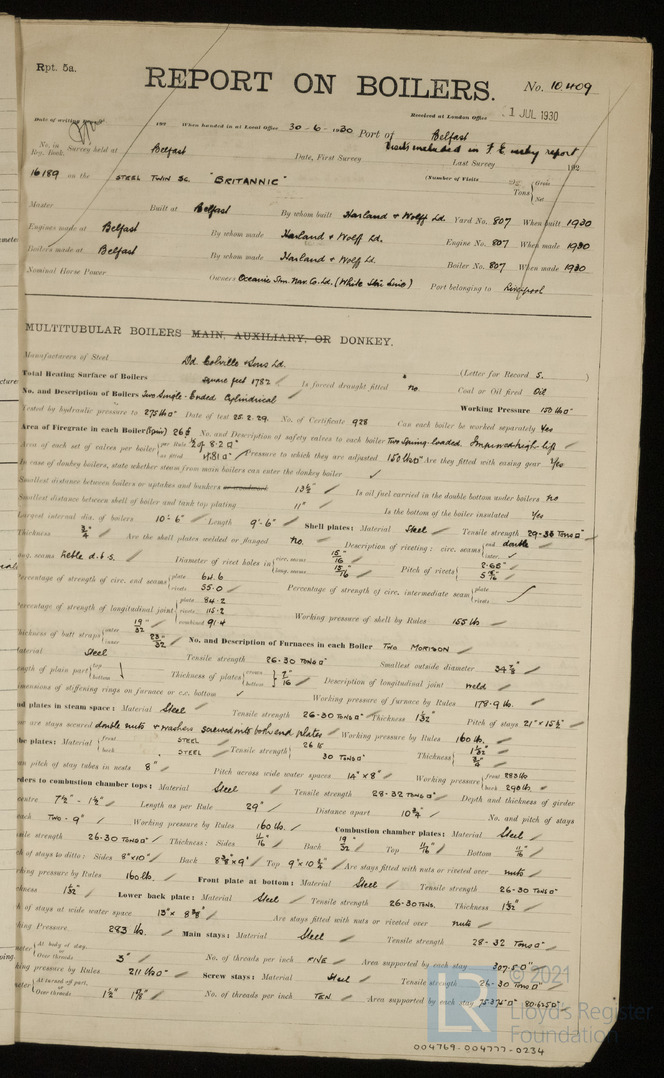 Rpt. 5a.
REPORT ON BOILERS.
No. 10,409
Received at London Office 1 JUL 1930
Date of writing When handed in at Local Office 30-6-1930 Port of Belfast
No. in Survey held at Belfast Date, First Survey Last Survey 192
Reg. Book.
16189 on the STEEL TWIN SC. "BRITANNIC" (Number of Visits Tons Gross Net
Master Built at Belfast By whom built Harland & Wolff Ld. Yard No. 807 When built 1930
Engines made at Belfast By whom made Harland & Wolff Ld. Engine No. 807 When made 1930
Boilers made at Belfast By whom made Harland & Wolff Ld. Boiler No. 807 When made 1930
Nominal Horse Power Owners Oceanic Stm. Nav. Co. Ld. (White Star Line) Port belonging to Liverpool
MULTITUBULAR BOILERS MAIN, AUXILIARY, OR DONKEY.
Manufacturers of Steel Dd. Colville & Sons Ld. (Letter for Record S. )
Total Heating Surface of Boilers square feet 1782 Is forced draught fitted no Coal or Oil fired Oil
No. and Description of Boilers Two Single-Ended Cylindrical Working Pressure 150 lbs
Tested by hydraulic pressure to 275 lbs Date of test 25.2.29. No. of Certificate 928 Can each boiler be worked separately Yes
Area of Firegrate in each Boiler No. and Description of safety valves to each boiler Two Spring-loaded. Improved high-lift
Area of each set of valves per boiler per Rule as fitted Pressure to which they are adjusted 150 lbs Are they fitted with easing gear Yes
In case of donkey boilers, state whether steam from main boilers can enter the donkey boiler
Smallest distance between boilers or uptakes and bunkers 13½" Is oil fuel carried in the double bottom under boilers no
Smallest distance between shell of boiler and tank top plating 11" Is the bottom of the boiler insulated Yes
Largest internal dia. of boilers 10'-6" Length 9'-6" Shell plates: Material Steel Tensile strength
Thickness ¾" Are the shell plates welded or flanged no. Description of riveting: circ. seams end double inter.
long. seams treble d.b.s. Diameter of rivet holes in circ. seams 15/16 long. seams 13/16 Pitch of rivets
Percentage of strength of circ. end seams plate 64.6 rivets 55.0 Percentage of strength of circ. intermediate seam plate rivets
Percentage of strength of longitudinal joint plate 84.2 rivets 115.2 combined 91.4 Working pressure of shell by Rules 155 lb
Thickness of butt straps outer 19/32 inner 23/32 No. and Description of Furnaces in each Boiler TWO MORISON
Material Steel Tensile strength 26-30 TONS Smallest outside diameter 34⅞"
Length of plain part top bottom Thickness of plates crown bottom 7/16" Description of longitudinal joint weld
Dimensions of stiffening rings on furnace or c.c. bottom Working pressure of furnace by Rules 178.9 lb.
End plates in steam space: Material Steel Tensile strength 26-30 TONS Thickness 1 1/32" Pitch of stays 21" x 15½"
How are stays secured double nuts & washers screwed into both end plates Working pressure by Rules 160 lbs.
Tube plates: Material front back STEEL STEEL Tensile strength Thickness
Mean pitch of stay tubes in nests 8" Pitch across wide water spaces 14" x 8" Working pressure front 283 lb back 290 lb
Girders to combustion chamber tops: Material Steel Tensile strength 28-32 TONS Depth and thickness of girder
centre 7½" - 1½" Length as per Rule 29" Distance apart 10¾" No. and pitch of stays
each TWO - 9" Working pressure by Rules 160 lbs. Combustion chamber plates: Material Steel
Tensile strength 26-30 TONS Thickness: Sides 11/16" Back 19/32 Top 11/16" Bottom 11/16"
Pitch of stays to ditto: Sides 8"x10" Back 8⅜"x9" Top 9"x10¾" Are stays fitted with nuts or riveted over nuts
Working pressure by Rules 160 lb. Front plate at bottom: Material Steel Tensile strength 26-30 TONS
Thickness 1 1/32" Lower back plate: Material Steel Tensile strength 26-30 TONS. Thickness 1 1/32"
Pitch of stays at wide water space 13" x 8⅜" Are stays fitted with nuts or riveted over nuts
Working Pressure 283 lb. Main stays: Material Steel Tensile strength 28-32 TONS
Diameter At body of stay, or Over threads 3" No. of threads per inch FIVE Area supported by each stay 307.5
Working pressure by Rules 211 lbs Screw stays: Material Steel Tensile strength 26-30 TONS
Diameter At turned off part, or Over threads 1½" 1⅝" No. of threads per inch TEN Area supported by each stay 75.375 80.625
© 2021
Lloyd's Register
Foundation
004769-004777-0234